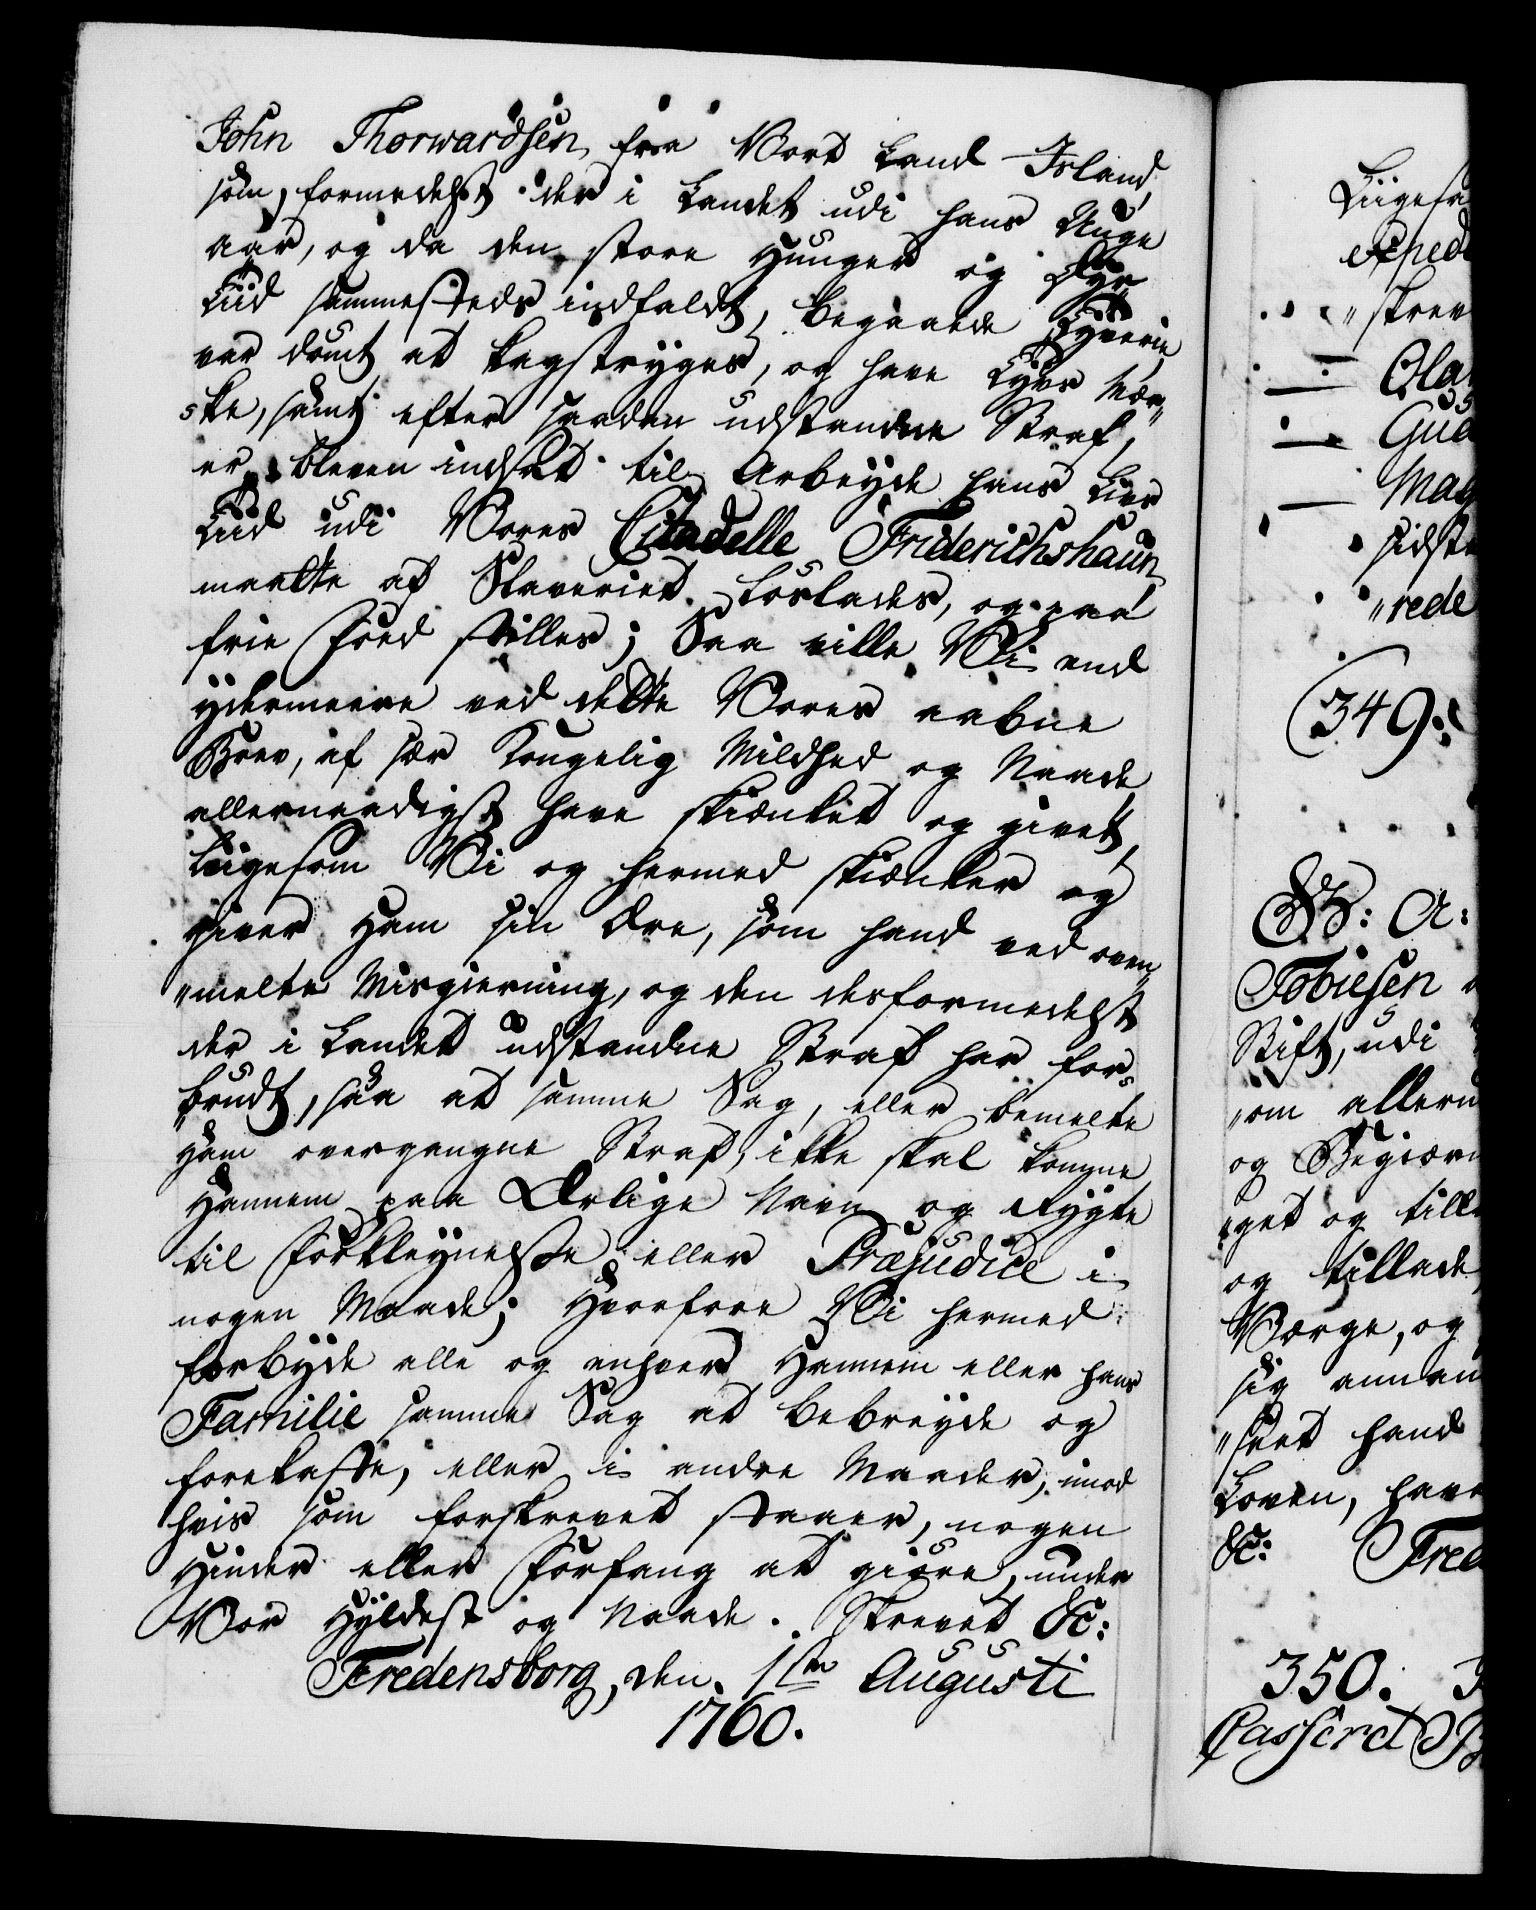 John Thorwardsen fra Vort Land Island,
som, formedelst der i Landet udi hans Unge
aar, og da den store Hunger og Dyr
Tiid sammesteds indfaldt, begaaede Tyverie
var dømt at kagstryges, og have Tyvs Mær„
ske, samt efter saaden udstanden Straf,
er bleven indsat til Arbeyde hans Livs
Tiid udi Vores Citadelle Friderichshaun
maatte af Slaveriet losslades, og paa
frie Foed stilles; Saa ville Vi end
ydermeere ved dette Vores aabne
Brev, af sær Kongelig Mildhed og Naade
allernaadigst have skiænket og givet,
liigesom Vi og hermed skiænker og
giver Ham sin Ære, som hand ved oven„
„melte Misgierning, og den desformedelst
der i Landet udstandne Straf har for„
brudt, saa at samme Sag, eller bemelte
Ham overgangne Straf, ikke skal komme
Hannem paa Ærlige Navn og Rygte
til Forkleynelse eller Præjudice i
nogen Maade; Hvorfore Vi hermed
forbyde alle og enhver Hannem eller hans
Familie samme Sag at bebreyde og
forekaste, eller i andre Maader, imod
hvis som forskrevet staaer, nogen
Hinder eller Forfang at giøre, under
Vor Hyldest og Naade. Skrevet &c:
Fredensborg, den 1ste Augusti
1760.
Liigesa
exped
„skrev
Ola
Gu
Mag
sidst
„rede
(349.
G: A:
Tobiesen
Stift, udi
„om alleru
og Begiær
get og till
og tillade
Værge, og
sig annam
„sret hand
Loven, have
&c: Fred
350.
Casseret